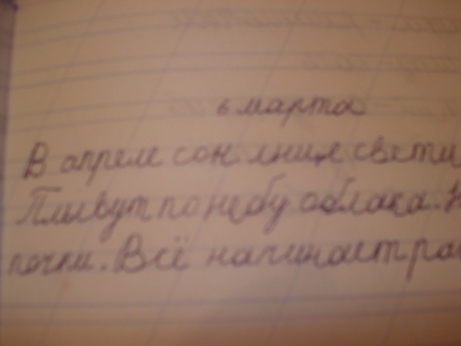 6 марта
В апреле сон лнце свети
Плывут по небу облака. Н
почки. Всё начинает ра